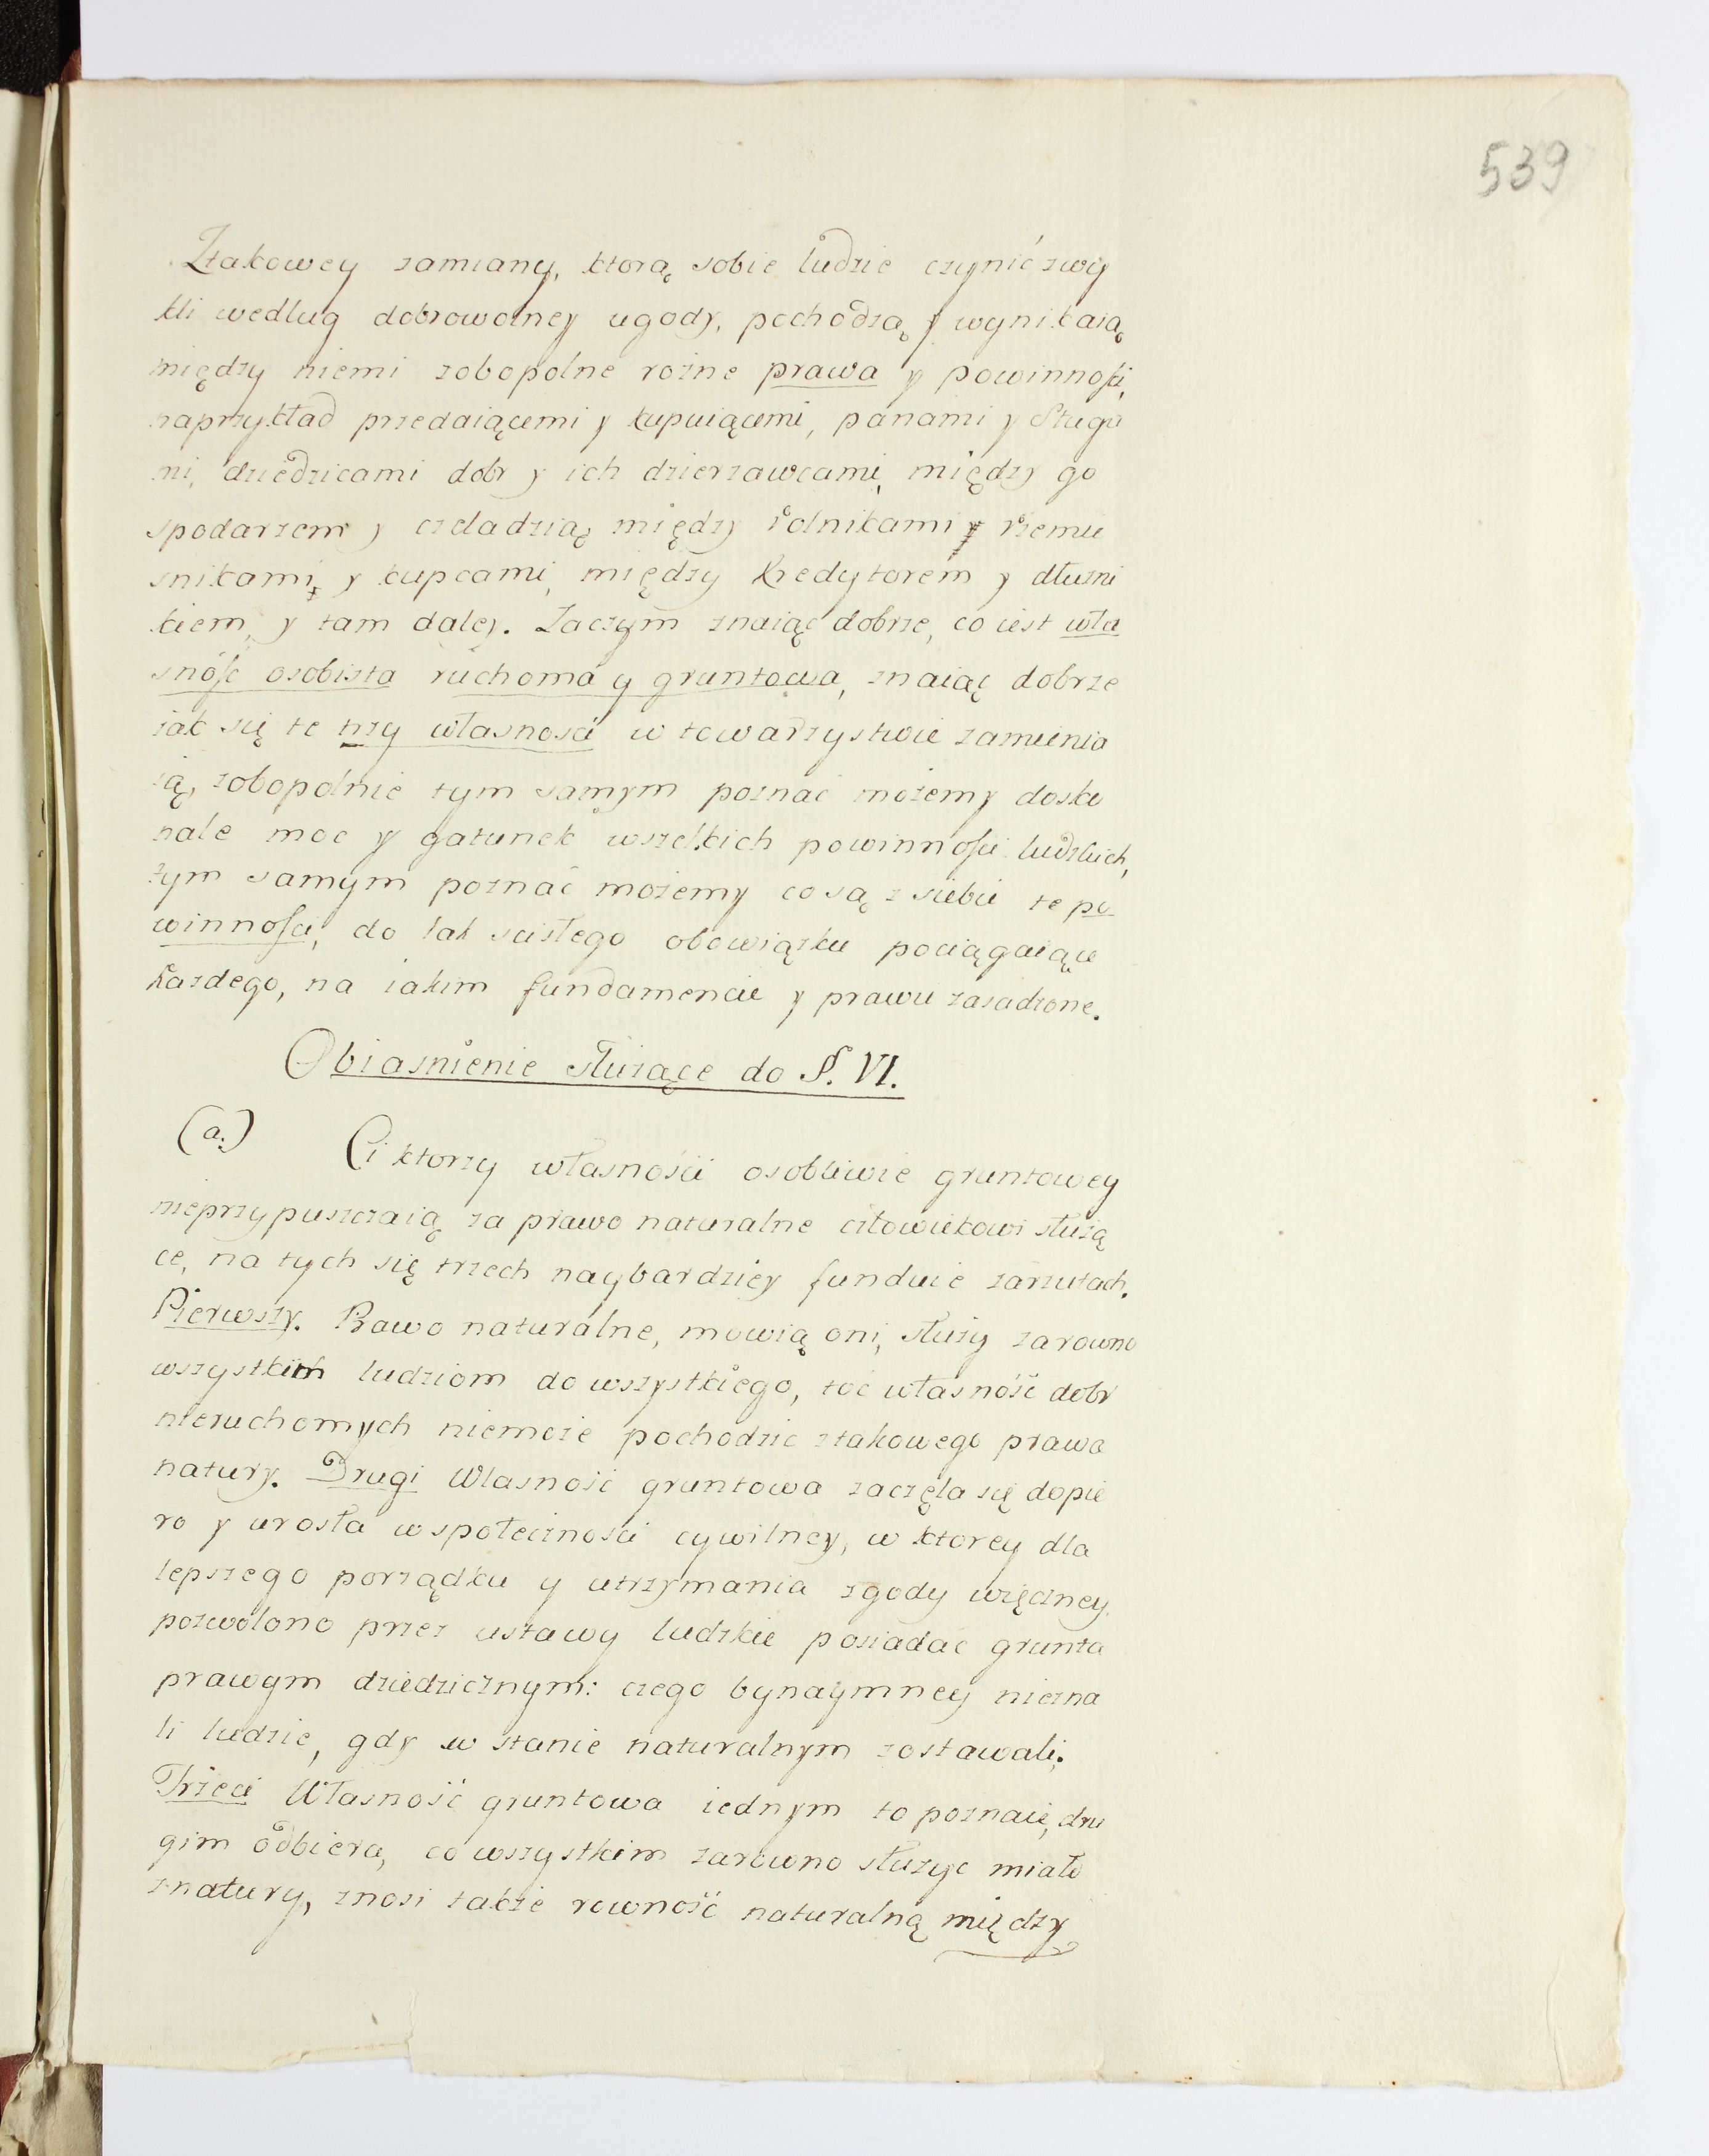 539
Ztakowey zamiany, ktorą sobie ludzie czynić zwy
kli według dobrowolney ugody, pochodzą y wynikaią
między niemi zobopolne rożne prawa y powinności,
naprzykład przedaiącemi y kupuiącemi, panami y sługa
mi, dziedzicami dobr y ich dzierzawcami, między go
spodarzem y czeladzią między rolnikami y rzemie
snikami y kupcami, między kredytorem y dłużni
kiem, y tam daley. Zaczym znaiąc dobrze, co iest wła
sność osobista ruchoma y gruntowa, znaiąc dobrze
iak się te trzy własnosci w towarzystwie zamienia
ią, zobopolnie tym samym poznać możemy dosko
nale moc y gatunek wszelkich powinności ludzkich,
tym samym poznać możemy co są z siebie te po
winności, do tak scisłego obowiązku pociągaiące
każdego, na iakim fundamencie y prawie zasadzone.
Obiasnienie służące do §. VI.
(a.) Ci ktorzy własności osobliwie gruntowey
nieprzypuszczaią za prawo naturalne człowiekowi służą
ce, na tych się trzech naybardziey funduie zarzutach.
Pierwszy. Prawo naturalne, mowią oni, służy zarowno
wszystkim ludziom do wszystkiego, toć własność dobr
nieruchomych niemoże pochodzic ztakowego prawa
natury. Drugi Własność gruntowa zaczęła się dopie
ro y urosła w społeczności cywilney, w ktorey dla
lepszego porządku y utrzymania zgody więczney
pozwolono przez ustawy ludzkie posiadać grunta
prawym dziedzicznym: czego bynaymney niezna
li ludzie, gdy w stanie naturalnym zostawali;
Trzeci Własność gruntowa iednym to poznaie, dru
gim odbiera, co wszystkim zarowno służyc miało
znatury, znosi także rowność naturalną między